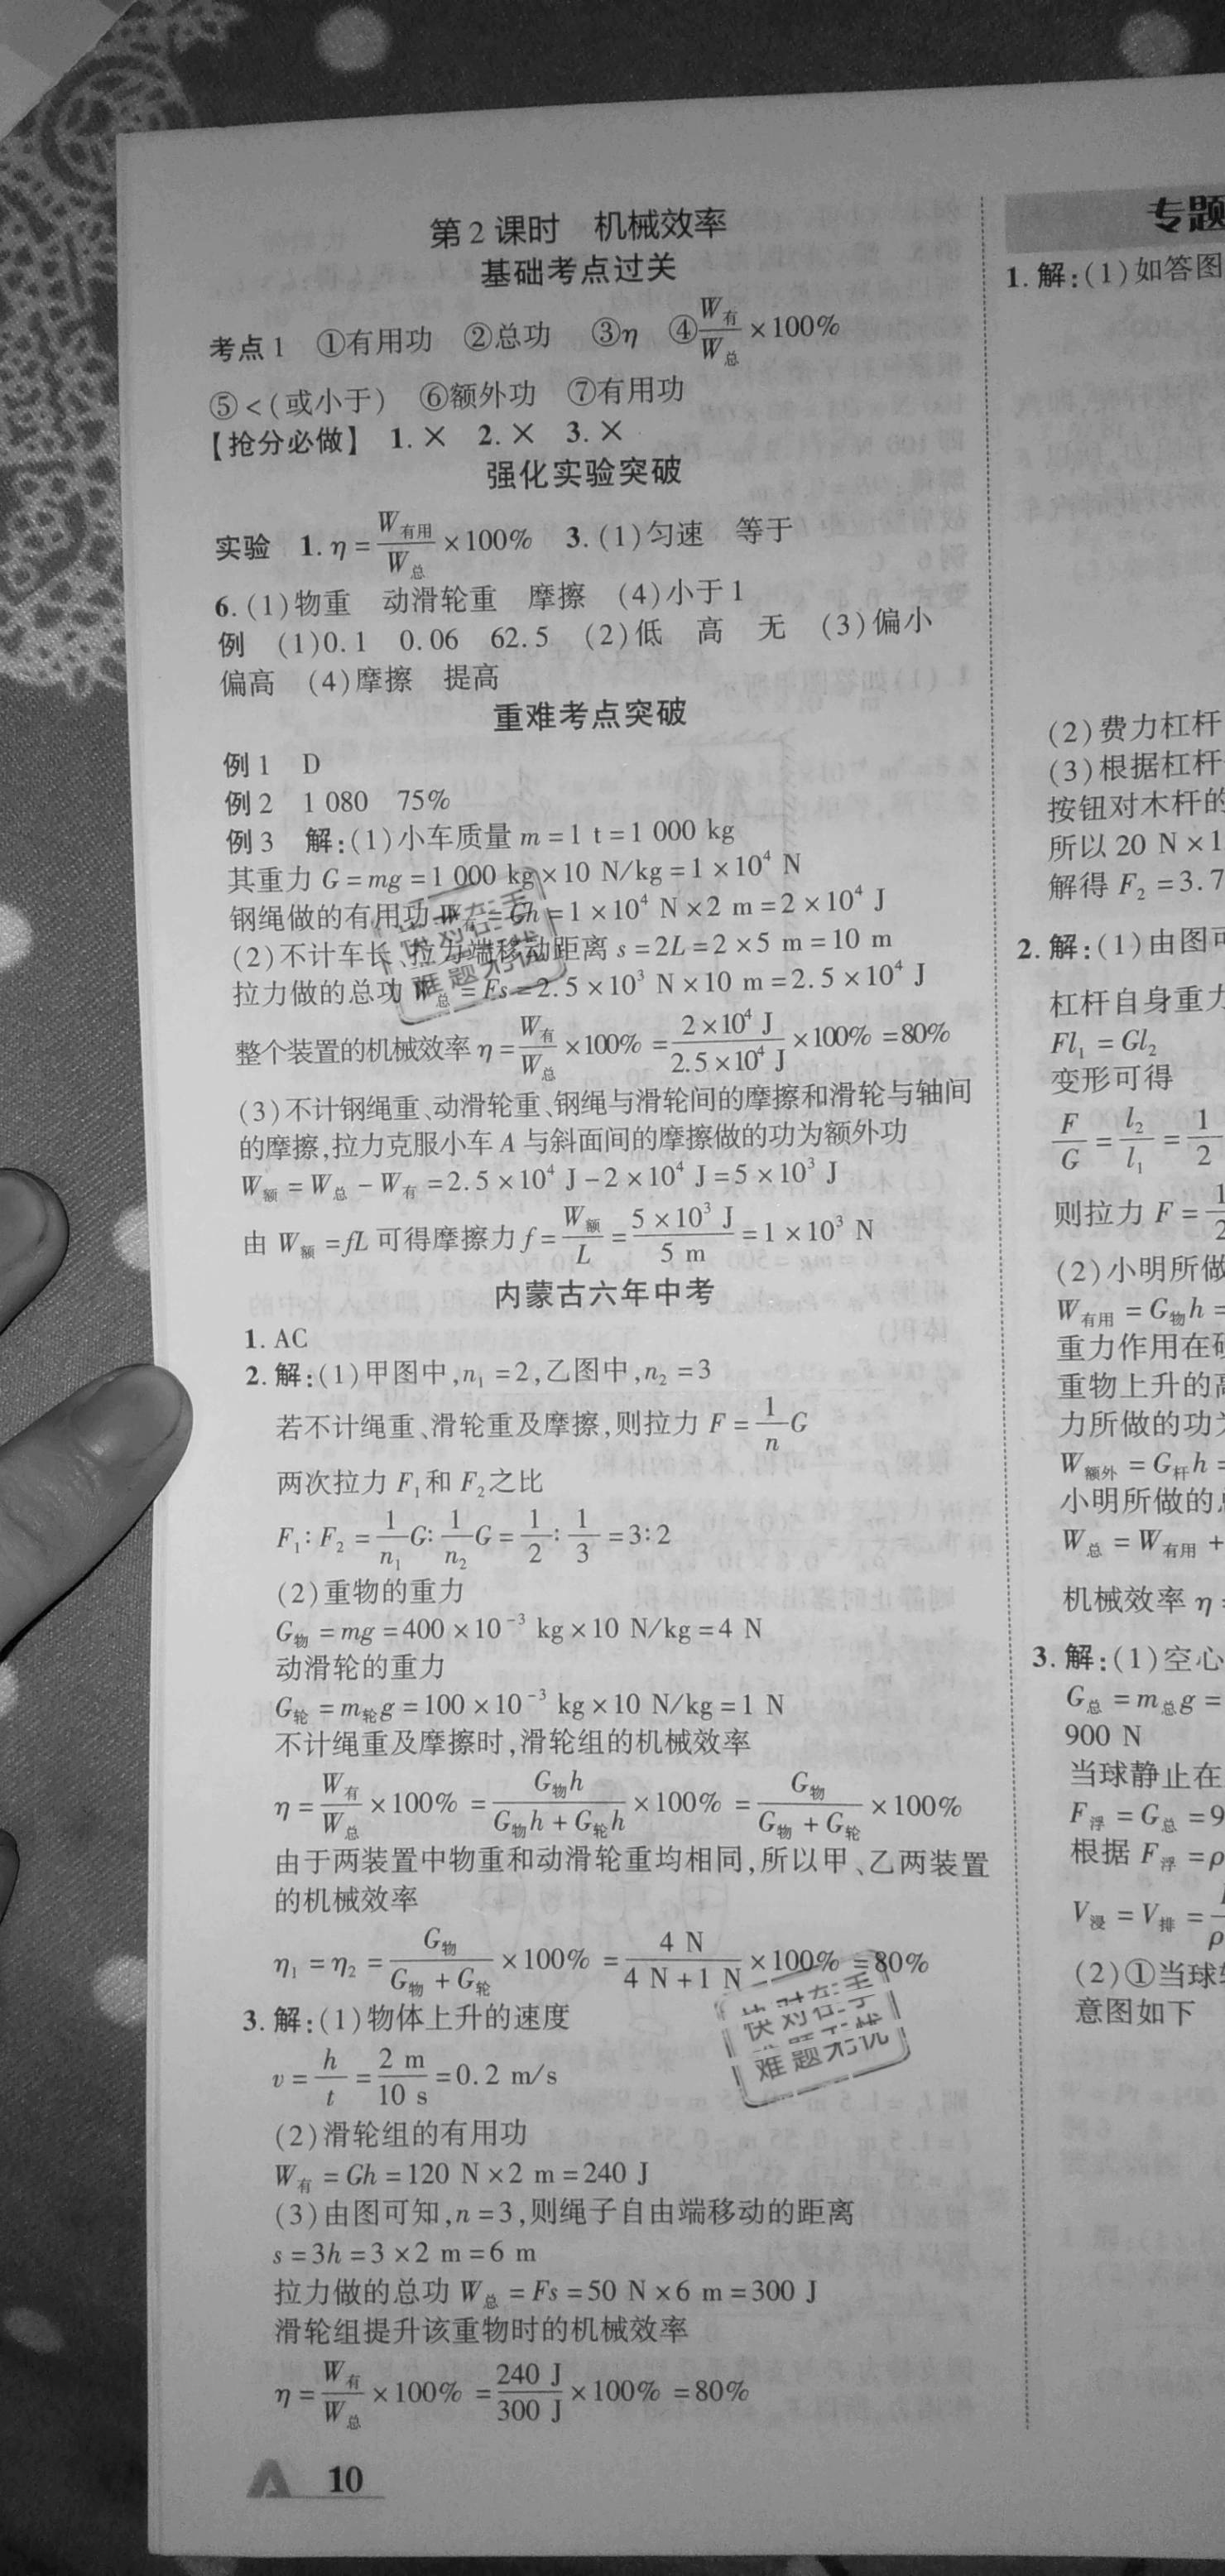 第2课时 机械效率
基础考点过关
考点1 ①有用功 ②总功 ③η ④W有/W总×100%
⑤<(或小于) ⑥额外功 ⑦有用功
【抢分必做】 1. × 2. × 3. ×
强化实验突破
实验 1. η=W有用/W总×100% 3. (1)匀速 等于
6. (1)物重 动滑轮重 摩擦 (4)小于1
例 (1)0.1 0.06 62.5 (2)低 高 无 (3)偏小
偏高 (4)摩擦 提高
重难考点突破
例1 D
例2 1 080 75%
例3 解:(1)小车质量m=1 t=1 000 kg
其重力G=mg=1 000 kg×10 N/kg=1×10⁴ N
钢绳做的有用功W有=Gh=1×10⁴ N×2 m=2×10⁴ J
(2)不计车长、拉力端移动距离s=2L=2×5 m=10 m
拉力做的总功W总=Fs=2.5×10³ N×10 m=2.5×10⁴ J
整个装置的机械效率η=W有/W总×100%=2×10⁴ J/2.5×10⁴ J×100%=80%
(3)不计钢绳重、动滑轮重、钢绳与滑轮间的摩擦和滑轮与轴间
的摩擦,拉力克服小车A与斜面间的摩擦做的功为额外功
W额=W总-W有=2.5×10⁴ J-2×10⁴ J=5×10³ J
由W额=fL可得摩擦力f=W额/L=5×10³ J/5 m=1×10³ N
内蒙古六年中考
1. AC
2. 解:(1)甲图中,n₁=2,乙图中,n₂=3
若不计绳重、滑轮重及摩擦,则拉力F=1/n G
两次拉力F₁和F₂之比
F₁:F₂=1/n₁ G:1/n₂ G=1/2:1/3=3:2
(2)重物的重力
G物=mg=400×10⁻³ kg×10 N/kg=4 N
动滑轮的重力
G轮=m轮g=100×10⁻³ kg×10 N/kg=1 N
不计绳重及摩擦时,滑轮组的机械效率
η=W有/W总×100%=G物h/G物h+G轮h×100%=G物/G物+G轮×100%
由于两装置中物重和动滑轮重均相同,所以甲、乙两装置
的机械效率
η₁=η₂=G物/G物+G轮×100%=4 N/4 N+1 N×100%=80%
快对在手
难题无忧
3. 解:(1)物体上升的速度
v=h/t=2 m/10 s=0.2 m/s
(2)滑轮组的有用功
W有=Gh=120 N×2 m=240 J
(3)由图可知,n=3,则绳子自由端移动的距离
s=3h=3×2 m=6 m
拉力做的总功W总=Fs=50 N×6 m=300 J
滑轮组提升该重物时的机械效率
η=W有/W总×100%=240 J/300 J×100%=80%
10
专题
1. 解:(1)如答图
(2)费力杠杆
(3)根据杠杆
按钮对木杆的
所以20 N×1
解得F₂=3.7
2. 解:(1)由图可
杠杆自身重力
Fl₁=Gl₂
变形可得
F/G=l₂/l₁=1/2
则拉力F=1/2
(2)小明所做
W有用=G物h=
重力作用在
重物上升的高
力所做的功为
W额外=G杆h=
小明所做的总
W总=W有用+
机械效率η=
3. 解:(1)空心
G总=m总g=
900 N
当球静止在
F浮=G总=9
根据F浮=ρ
V浸=V排=
(2)①当球
意图如下